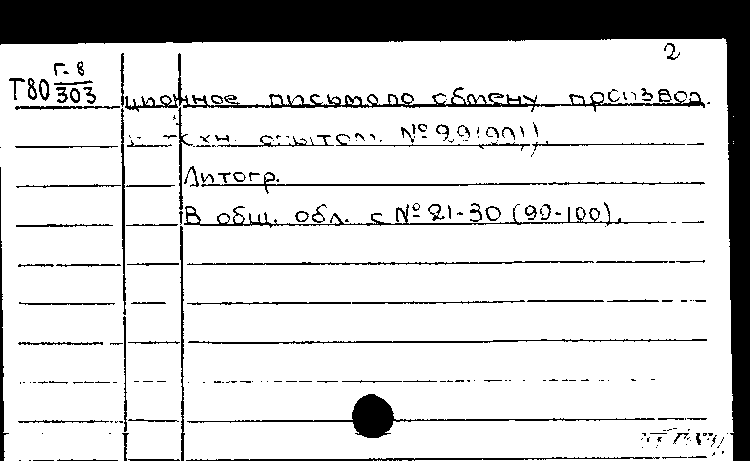 2
Т80 Г-8
303
ционное письмо по обмену производ.
и техн. опытом. № 29 (99)
Литогр.
В общ. обл. с № 21-30 (90-100).